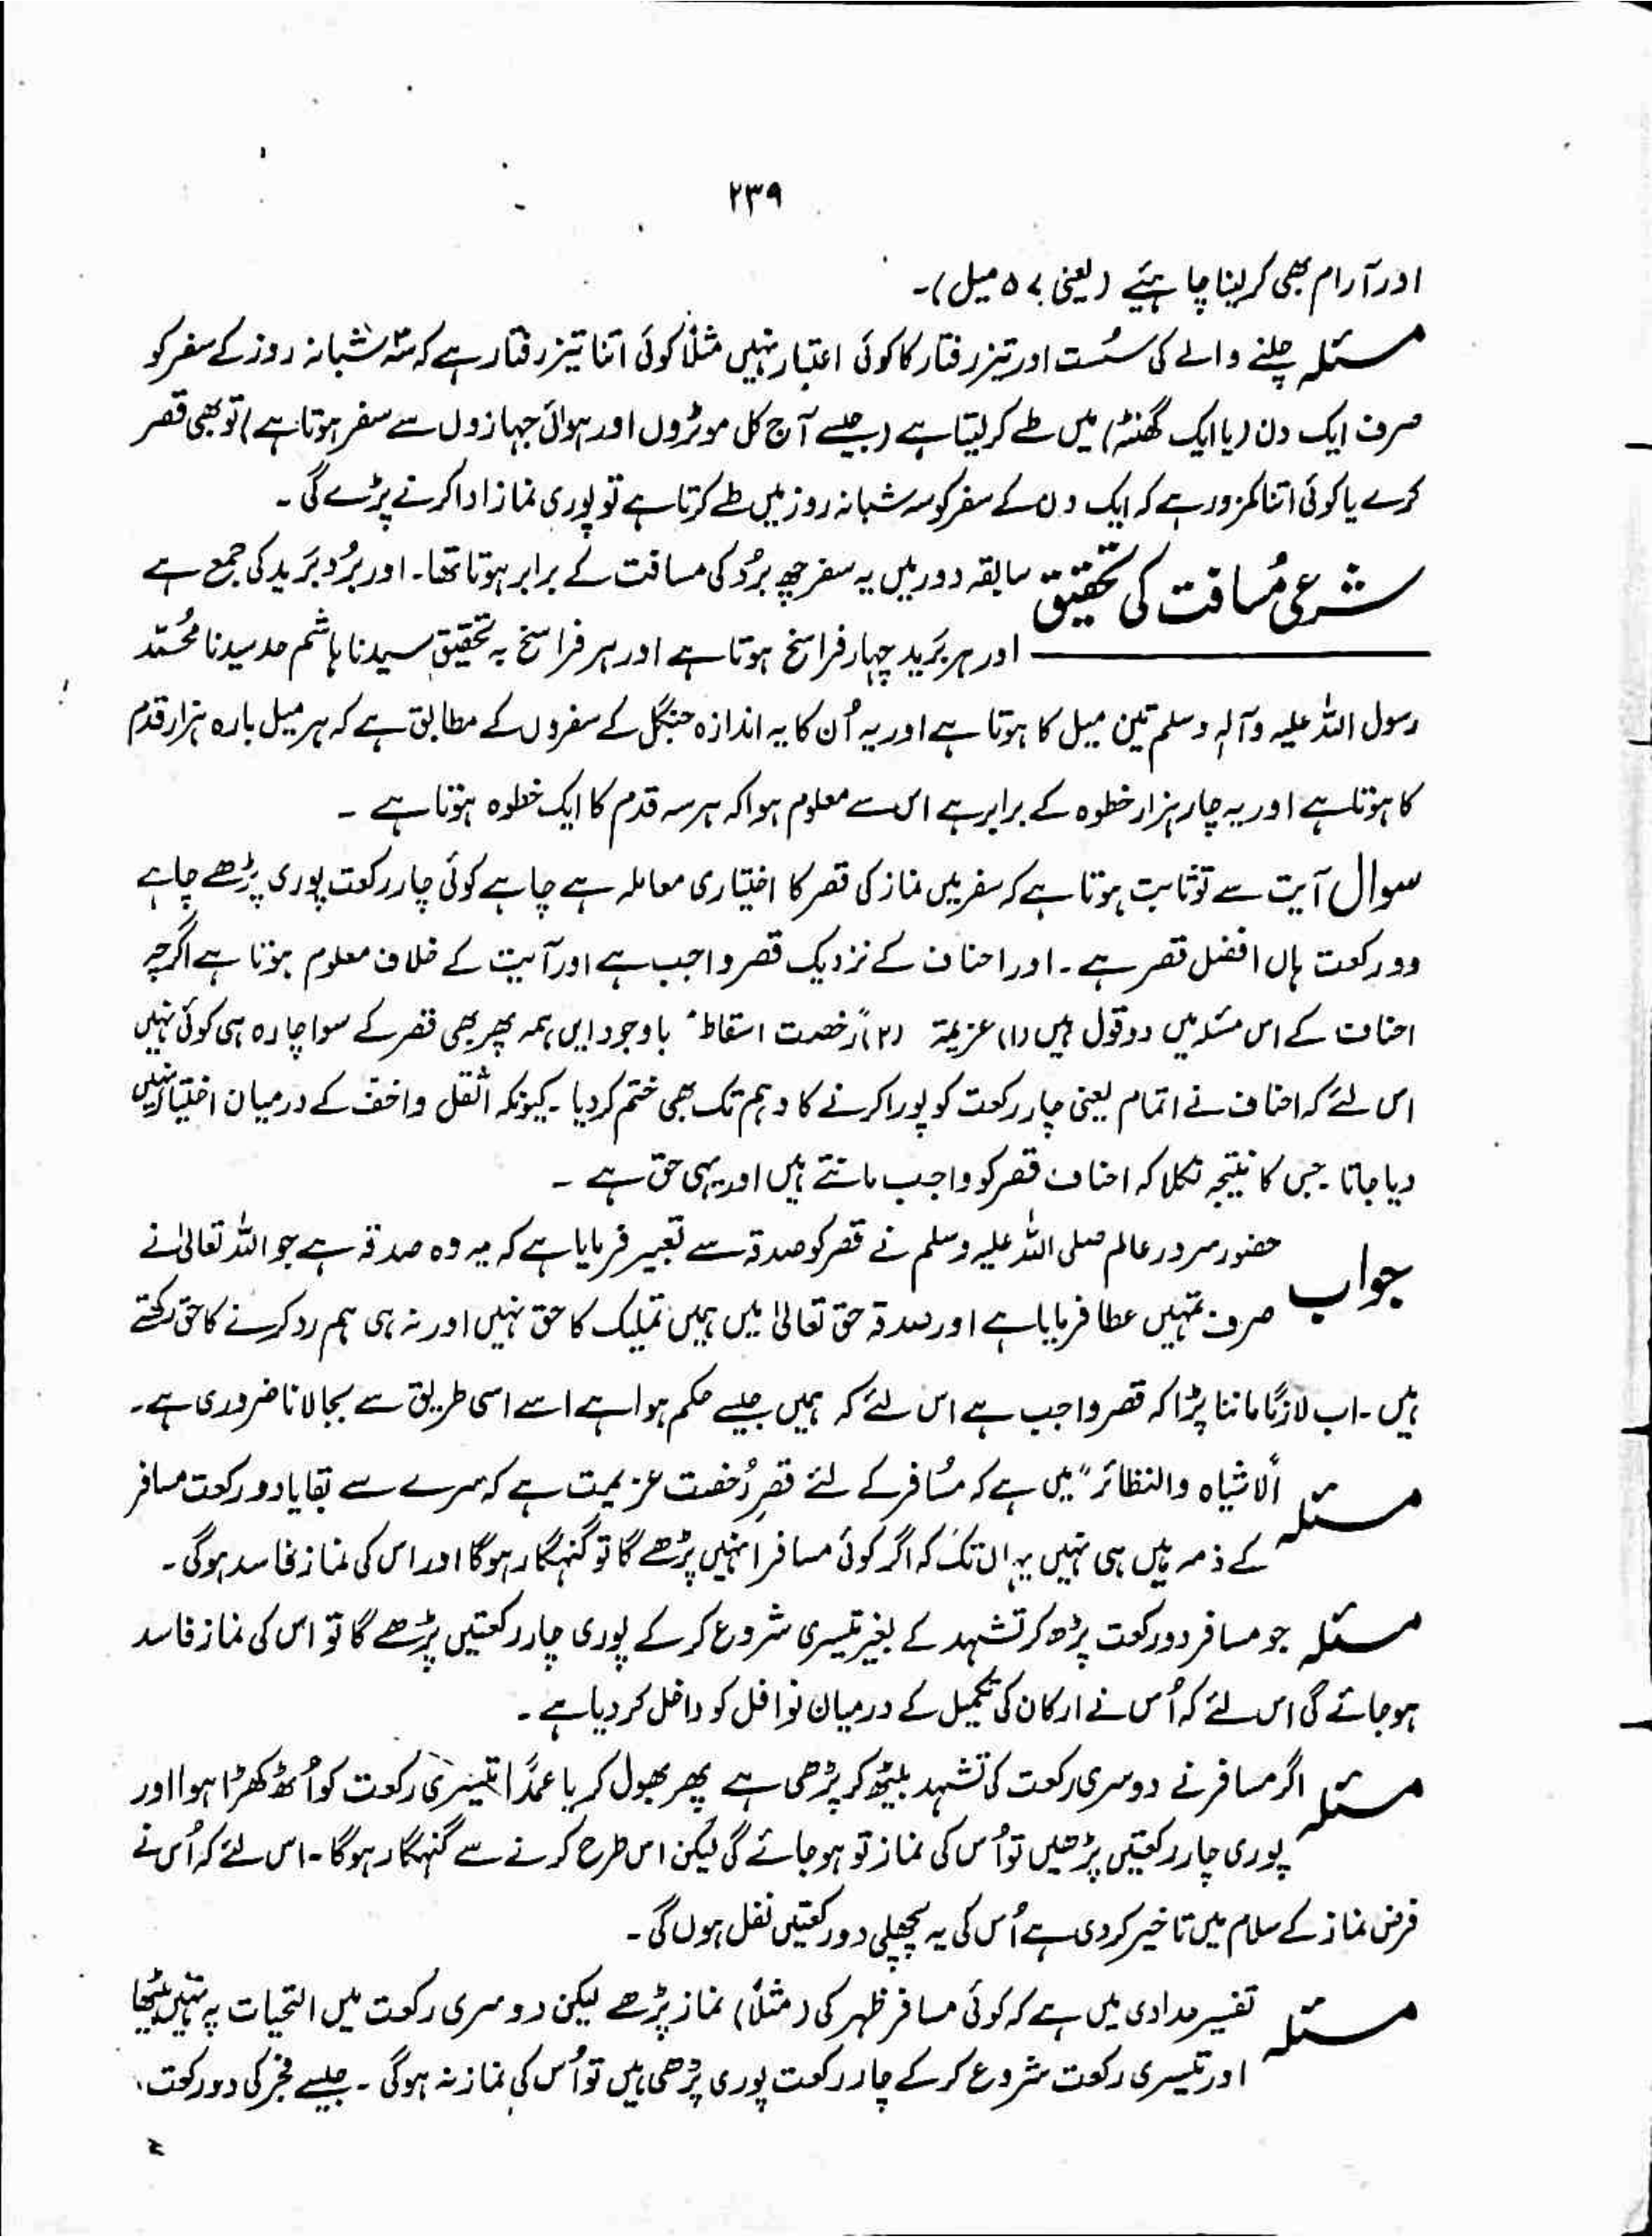 ۲۳۹
اور آرام بھی کر لینا چاہئیے (یعنی ۵۷ میل)۔
مسئلہ چلنے والے کی سُست اور تیز رفتار کا کوئی اعتبار نہیں مثلاً کوئی اتنا تیز رفتار ہے کہ سہ شبانہ روز کے سفر کو
صرف ایک دن (یا ایک گھنٹہ) میں طے کر لیتا ہے (جیسے آج کل موٹروں اور ہوائی جہازوں سے سفر ہوتا ہے) تو بھی قصر
کرے یا کوئی اتنا کمزور ہے کہ ایک دن کے سفر کو سہ شبانہ روز میں طے کرتا ہے تو پوری نماز ادا کرنے پڑے گی۔
شرعی مُسافت کی تحقیق سابقہ دور میں یہ سفر چھ بُرُد کی مسافت کے برابر ہوتا تھا۔ اور بُرُد بَرِید کی جمع ہے
اور ہر بَرِید چہار فراسخ ہوتا ہے اور ہر فراسخ بہ تحقیق سیدنا ہاشم جد سیدنا مُحمّد
رسول اللہ علیہ وآلہٖ وسلم تین میل کا ہوتا ہے اور یہ اُن کا یہ اندازہ جنگل کے سفروں کے مطابق ہے کہ ہر میل بارہ ہزار قدم
کا ہوتا ہے اور یہ چار ہزار خطوہ کے برابر ہے اس سے معلوم ہوا کہ ہر سہ قدم کا ایک خطوہ ہوتا ہے ۔
سوال آیت سے تو ثابت ہوتا ہے کہ سفر میں نماز کی قصر کا اختیاری معاملہ ہے چاہے کوئی چار رکعت پوری پڑھے چاہے
دو رکعت ہاں افضل قصر ہے۔ اور احناف کے نزدیک قصر واجب ہے اور آیت کے خلاف معلوم ہوتا ہے اگرچہ
احناف کے اس مسئلہ میں دو قول ہیں (۱) عزیمۃ (۲) "رخصت اسقاط" باوجود ایں ہمہ پھر بھی قصر کے سوا چارہ ہی کوئی نہیں
اس لئے کہ احناف نے اتمام یعنی چار رکعت کو پورا کرنے کا وہم تک بھی ختم کر دیا۔ کیونکہ اثقل و اخف کے درمیان اختیار نہیں
دیا جاتا جس کا نتیجہ نکلا کہ احناف قصر کو واجب مانتے ہیں اور یہی حق ہے ۔
جواب حضور سرور عالم صلی اللہ علیہ وسلم نے قصر کو صدقہ سے تعبیر فرمایا ہے کہ یہ وہ صدقہ ہے جو اللہ تعالیٰ نے
صرف تمہیں عطا فرمایا ہے اور صدقہ حق تعالیٰ میں ہمیں تملیک کا حق نہیں اور نہ ہی ہم رد کرنے کا حق رکھتے
ہیں۔ اب لازمًا ماننا پڑا کہ قصر واجب ہے اس لئے کہ ہمیں جیسے حکم ہوا ہے اسے اسی طریق سے بجا لانا ضروری ہے۔
مسئلہ اَلاشیاہ والنظائر" میں ہے کہ مُسافر کے لئے قصرِ رُخصت عزیمت ہے کہ سرے سے بقایا دو رکعت مسافر
کے ذمہ ہیں ہی نہیں یہاں تک کہ اگر کوئی مسافر انہیں پڑھے گا تو گنہگار ہوگا اور اس کی نماز فاسد ہوگی۔
مسئلہ جو مسافر دو رکعت پڑھ کر تشہد کے بغیر تیسری شروع کر کے پوری چار رکعتیں پڑھے گا تو اس کی نماز فاسد
ہو جائے گی اس لئے کہ اُس نے ارکان کی تکمیل کے درمیان نوافل کو داخل کر دیا ہے ۔
مسئلہ اگر مسافر نے دوسری رکعت کی تشہد بیٹھ کر پڑھی ہے پھر بھول کر یا عمدًا تیسری رکعت کو اُٹھ کھڑا ہوا اور
پوری چار رکعتیں پڑھیں تو اُس کی نماز تو ہو جائے گی لیکن اس طرح کرنے سے گنہگار ہوگا۔ اس لئے کہ اُس نے
فرض نماز کے سلام میں تاخیر کر دی ہے اُس کی یہ پچھلی دو رکعتیں نفل ہوں گی۔
مسئلہ تفسیر حدادی میں ہے کہ کوئی مسافر ظہر کی (مثلاً) نماز پڑھے لیکن دوسری رکعت میں التحیات پہ نہیں بیٹھا
اور تیسری رکعت شروع کر کے چار رکعت پوری پڑھی ہیں تو اُس کی نماز نہ ہوگی۔ جیسے فجر کی دو رکعت،